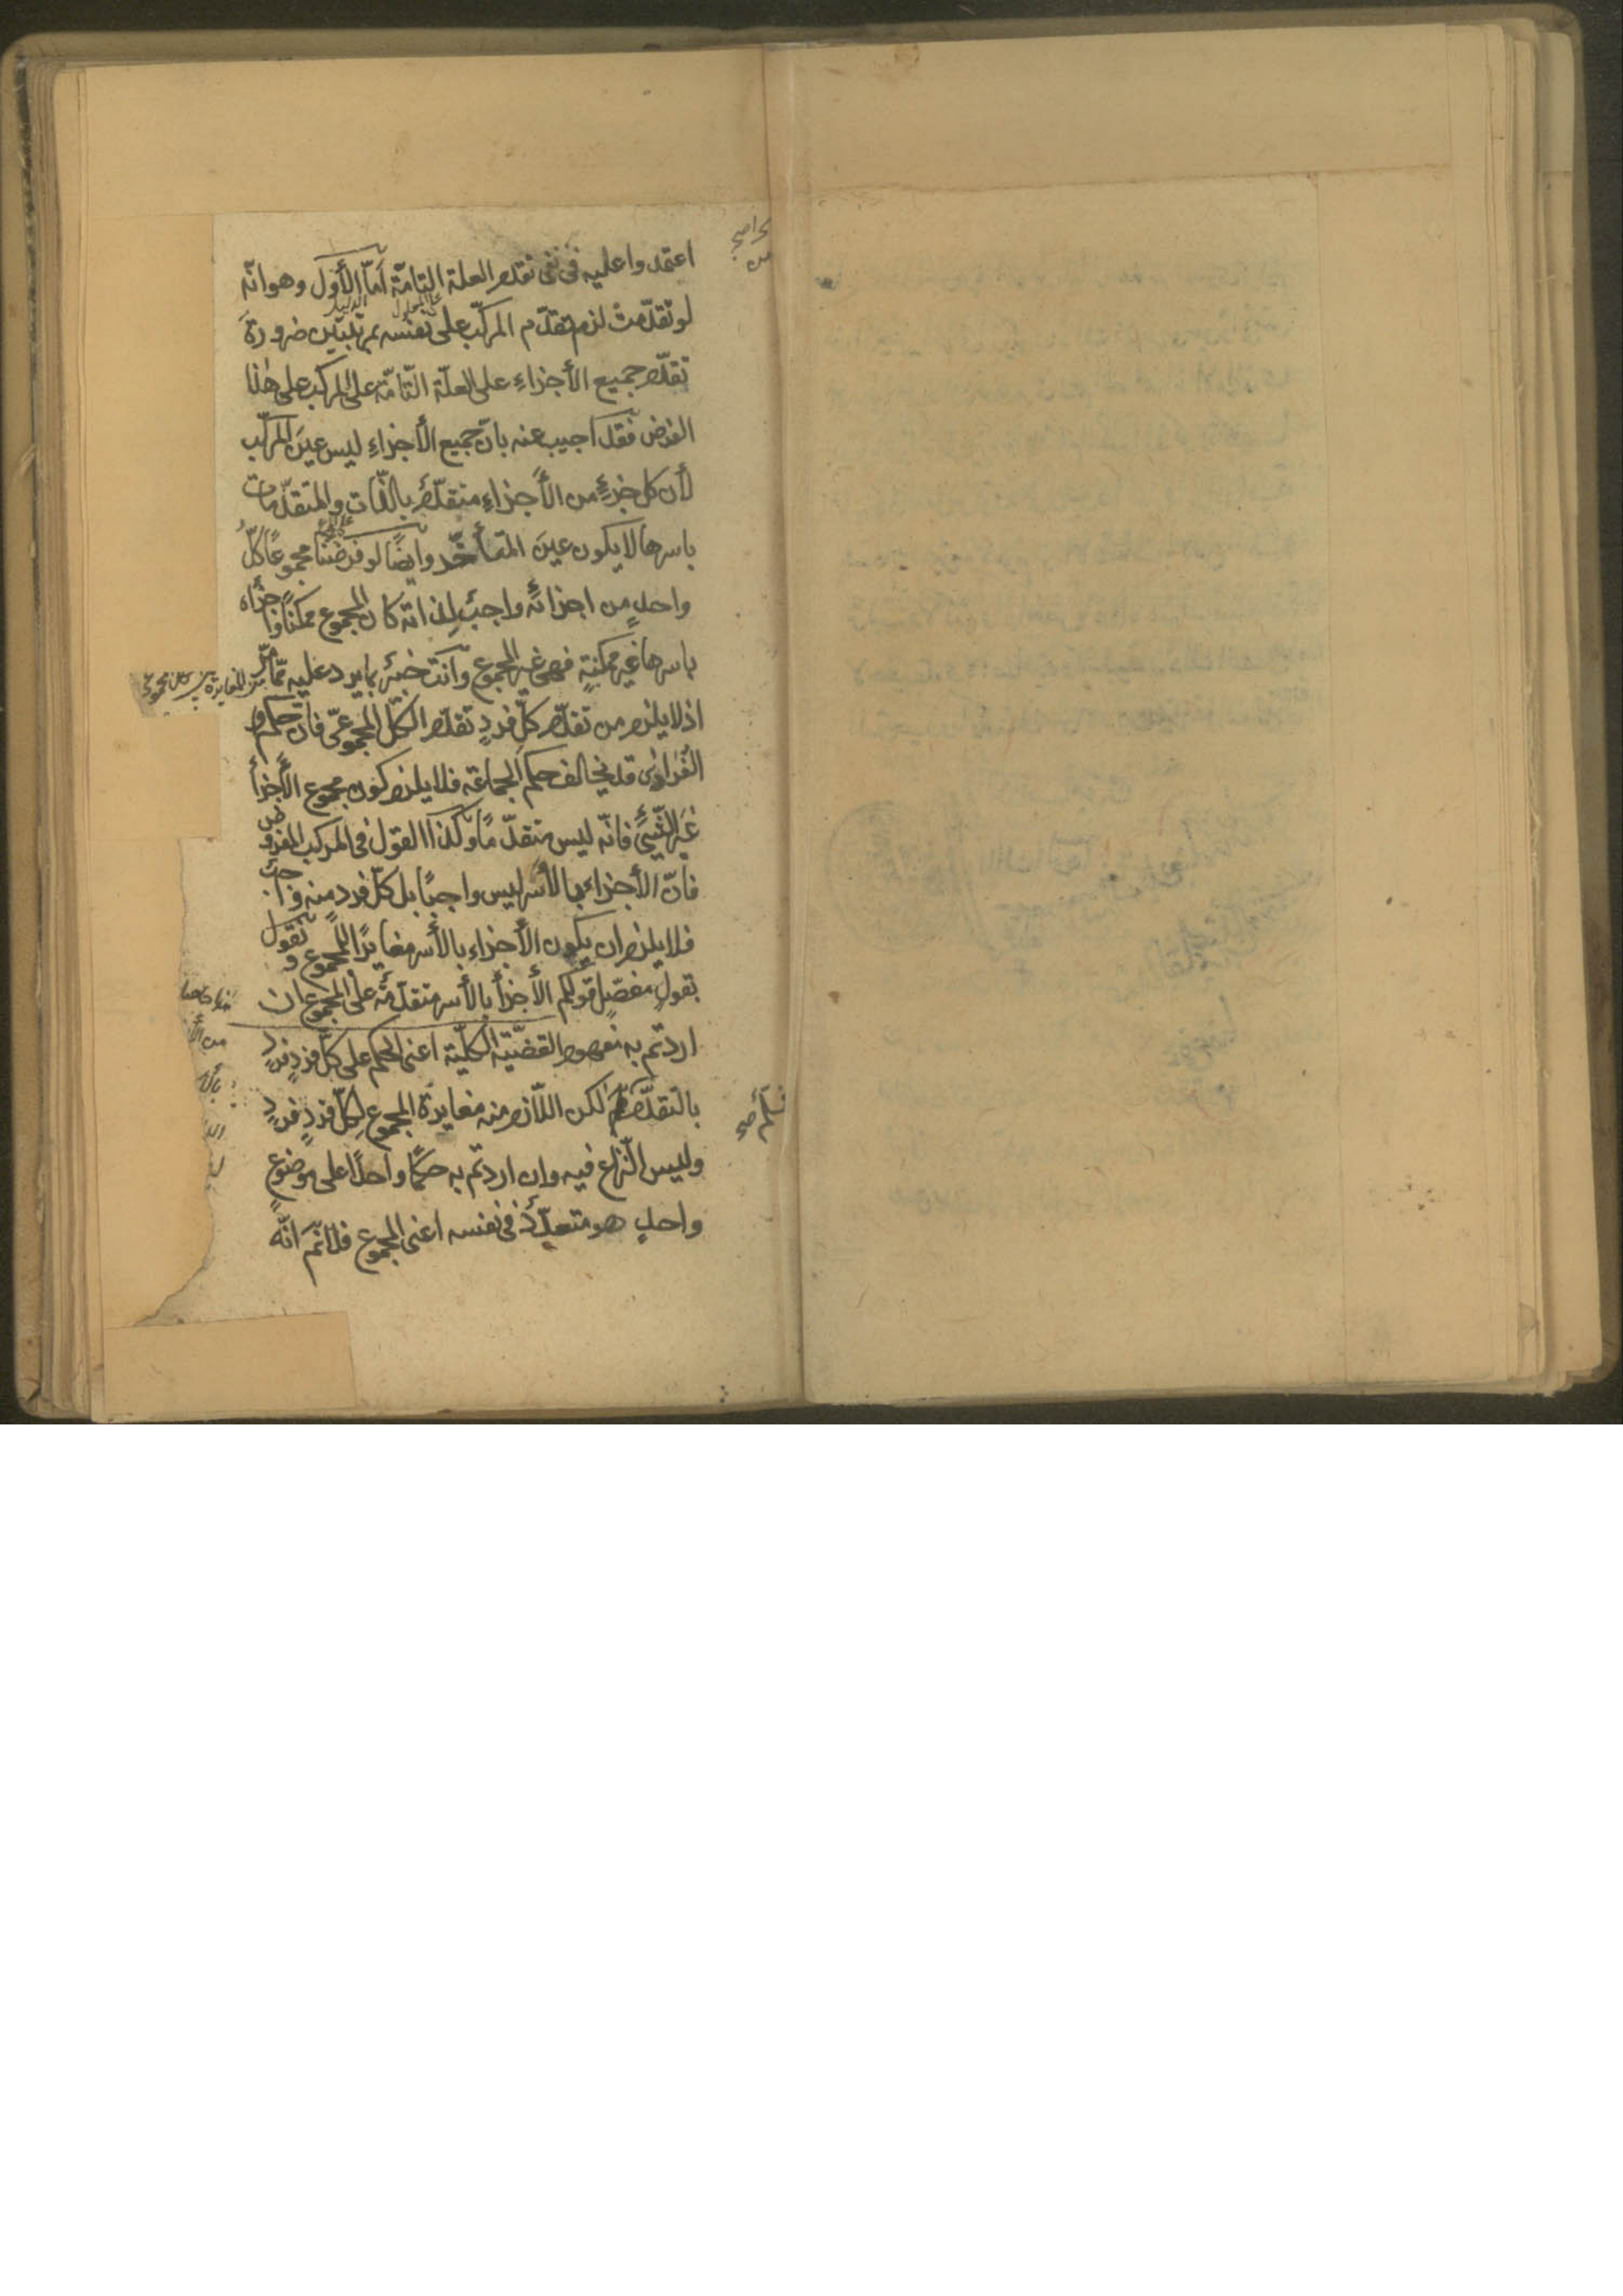 اعتمدوا عليه فى نفى تقدم العلة التامّة امّا الأوّل وهو انّه
لو تقدّمت لزم تقدّم المركّب على نفسه بمرتبتين ضرورة
تقدّم جميع الأجزاءِ على العلّة التّامّة على المركب على هٰذا
الفرض فقد اجيب عنه بانّ جميع الأجزاءِ ليس عينَ المركّب
لأن كل جزءٍ من الأجزاءِ متقدّمٌ بالذّات والمتقدّمات
باسرها لا يكون عينَ المتأخّر وايضًا لو فرضنا مجموعًا كلُّ
واحدٍ من اجزائه واجبٌ لذاته كان المجموع ممكنًا واجزاه
باسرها غير ممكنةٍ فهى غير المجموع وانت خبيرٌ بما يرد عليه ممّا مرّ
اذ لا يلزم من تقدّم كلّ فردٍ تقدّم الكلّ المجموعىّ فانّ حكم
الفُرادٰى قد يخالف حكم الجماعة فلا يلزم كون مجموع الأجزأ
غير الشّيئ فانّه ليس متقدّمًا وكذا القول فى المركب المفروض
فانّ الأجزاء بالأسر ليس واجبًا بل كلّ فرد منه واجب
فلا يلزم ان يكون الأجزاء بالأسر مغايرًا للمجموع ونقول
بقولٍ مفصّلٍ قولكم الأجزأ بالأسر متقدّمة على المجموع ان
اردتم به مفهوم القضيّة الكلّية اعنى الحكم على كلّ فردٍ فردٍ
بالتقدّم لكن اللّازم منه مغايرة المجموع لكلّ فردٍ فردٍ
وليس النّزاع فيه وان اردتم به حكمًا واحدًا على موضوعٍ
واحدٍ هو متعدّدٌ فى نفسه اعنى المجموع فلا نّم انّه